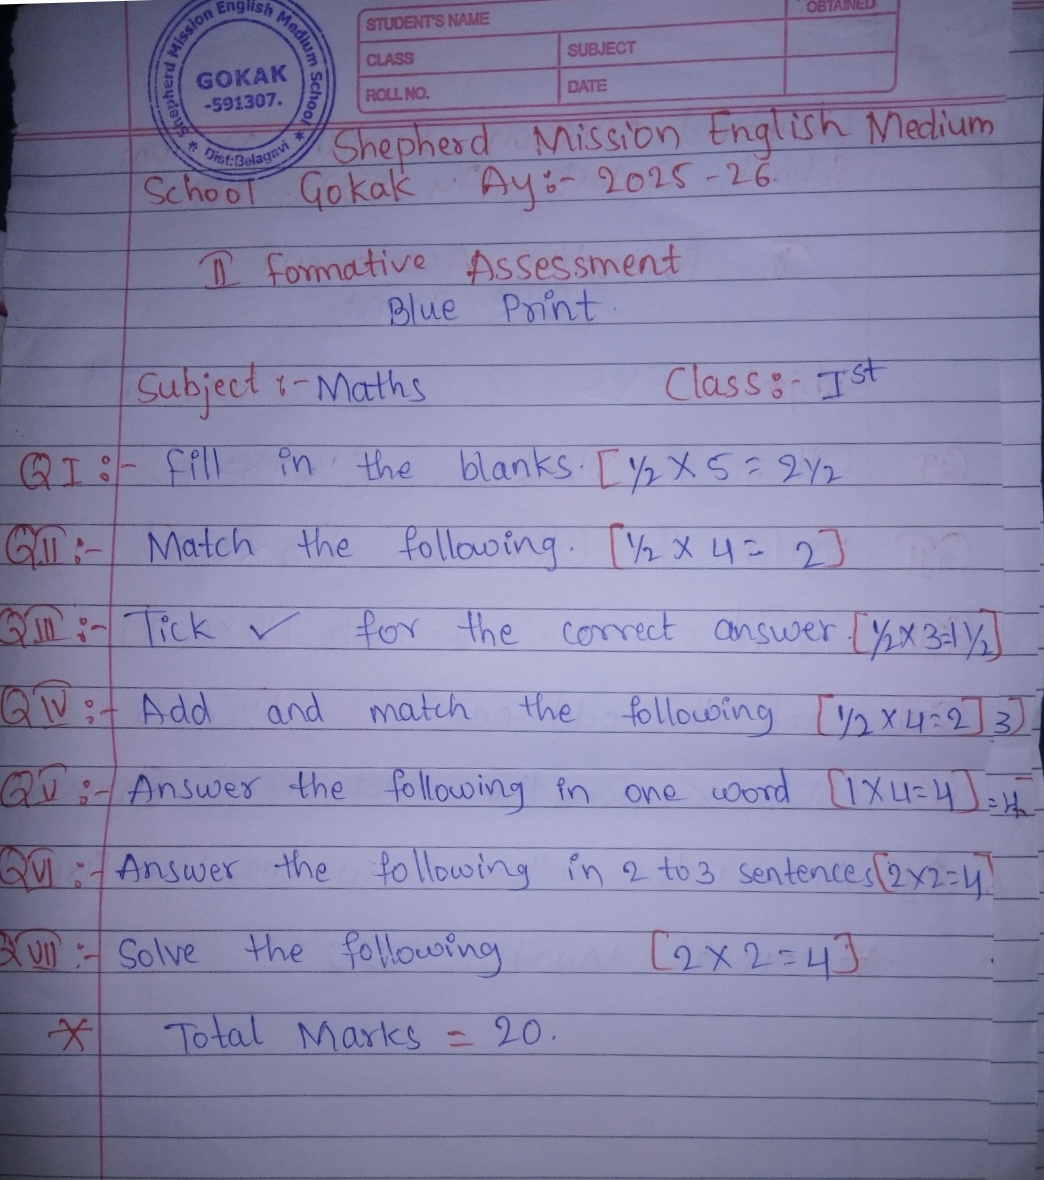 Shepherd Mission English Medium School
* Dist:Belagavi *
GOKAK
-591307.
STUDENT'S NAME
OBTAINED
CLASS
SUBJECT
ROLL NO.
DATE
Shepherd Mission English Medium
School Gokak Ay:- 2025-26.
II formative Assessment
Blue Print.
Subject :- Maths Class:- Ist
Q I :- fill in the blanks. [1/2 X 5 = 2 1/2
Q II :- Match the following. [1/2 X 4 = 2]
Q III :- Tick ✓ for the correct answer. [1/2 X 3=1 1/2]
Q IV :- Add and match the following [1/2 X 4=2] 3)
Q V :- Answer the following in one word [1X4=4]
Q VI :- Answer the following in 2 to 3 sentences [2x2=4]
Q VII :- Solve the following [2 X 2 = 4]
* Total Marks = 20.